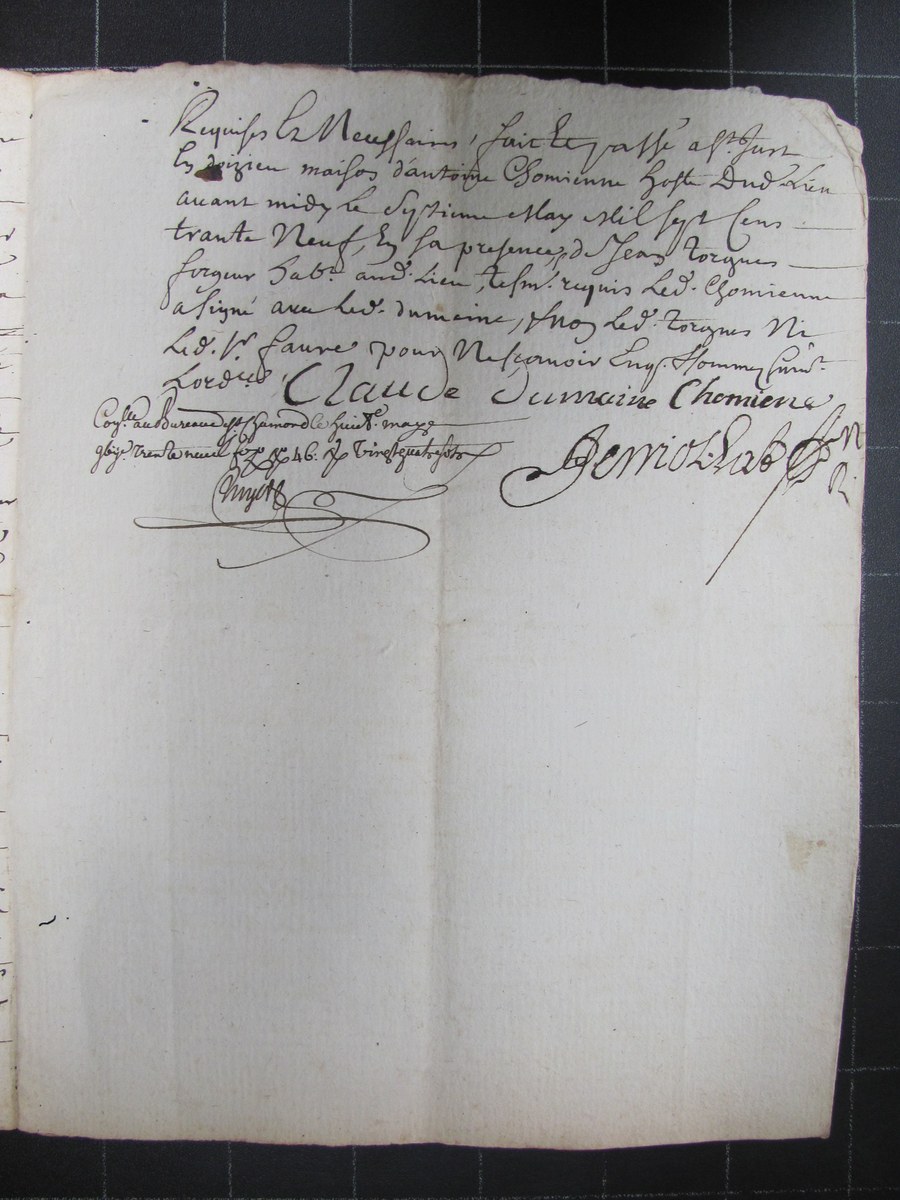 Requises & Necessaires, fait & passé a st. Just
En doizieu maison d'antoine Chomienne hoste Dud. Lieu
auant midy le Septieme May Mil Sept Cens
trante Neuf, En sa presence, & de Jean torgues
forgeur habt. aud. Lieu, tesm. requis Led. Chomienne
a signé auec Led. dumaine, & non Led. torgues Ni
Led. Sr. faure pour Ne scauoir Enq. & Sommez Suiut.
Lord.ce
Claude Dumaine Chomiene
Con.lé au Bureau de st. Chamond le huict.e maye
trente neuf 46. vingt quatre sols